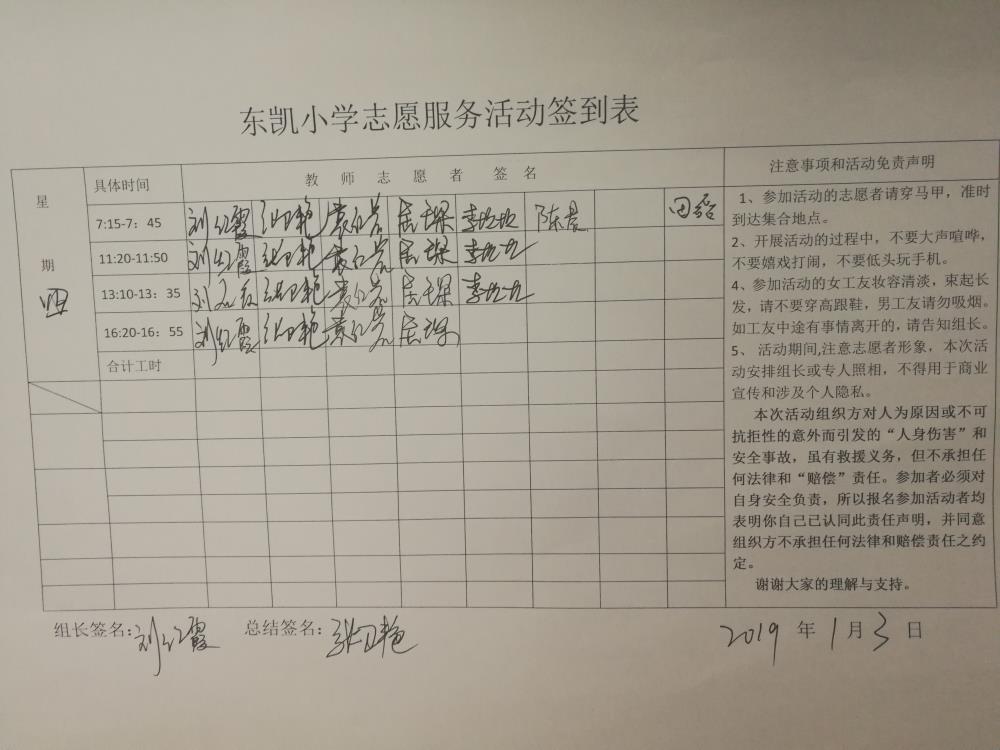 东凯小学志愿服务活动签到表
星期 四
具体时间
教 师 志 愿 者 签 名
注意事项和活动免责声明
7:15-7：45 刘红霞 陈晨 田磊
11:20-11:50 刘红霞
13:10-13：35
16:20-16：55 刘红霞
合计工时
1、参加活动的志愿者请穿马甲，准时
到达集合地点。
2、开展活动的过程中，不要大声喧哗，
不要嬉戏打闹，不要低头玩手机。
4、参加活动的女工友妆容清淡，束起长
发，请不要穿高跟鞋，男工友请勿吸烟。
如工友中途有事情离开的，请告知组长。
5、 活动期间,注意志愿者形象，本次活
动安排组长或专人照相，不得用于商业
宣传和涉及个人隐私。
本次活动组织方对人为原因或不可
抗拒性的意外而引发的“人身伤害”和
安全事故，虽有救援义务，但不承担任
何法律和“赔偿”责任。参加者必须对
自身安全负责，所以报名参加活动者均
表明你自己已认同此责任声明，并同意
组织方不承担任何法律和赔偿责任之约
定。
谢谢大家的理解与支持。
组长签名：刘红霞 总结签名： 2019 年 1 月 3 日